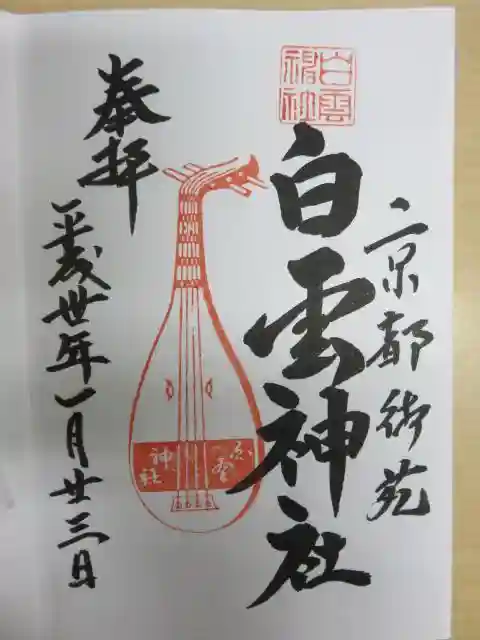 京都御苑
白雲神社
白雲神社
白雲
神社
奉拝
平成丗年一月廿三日